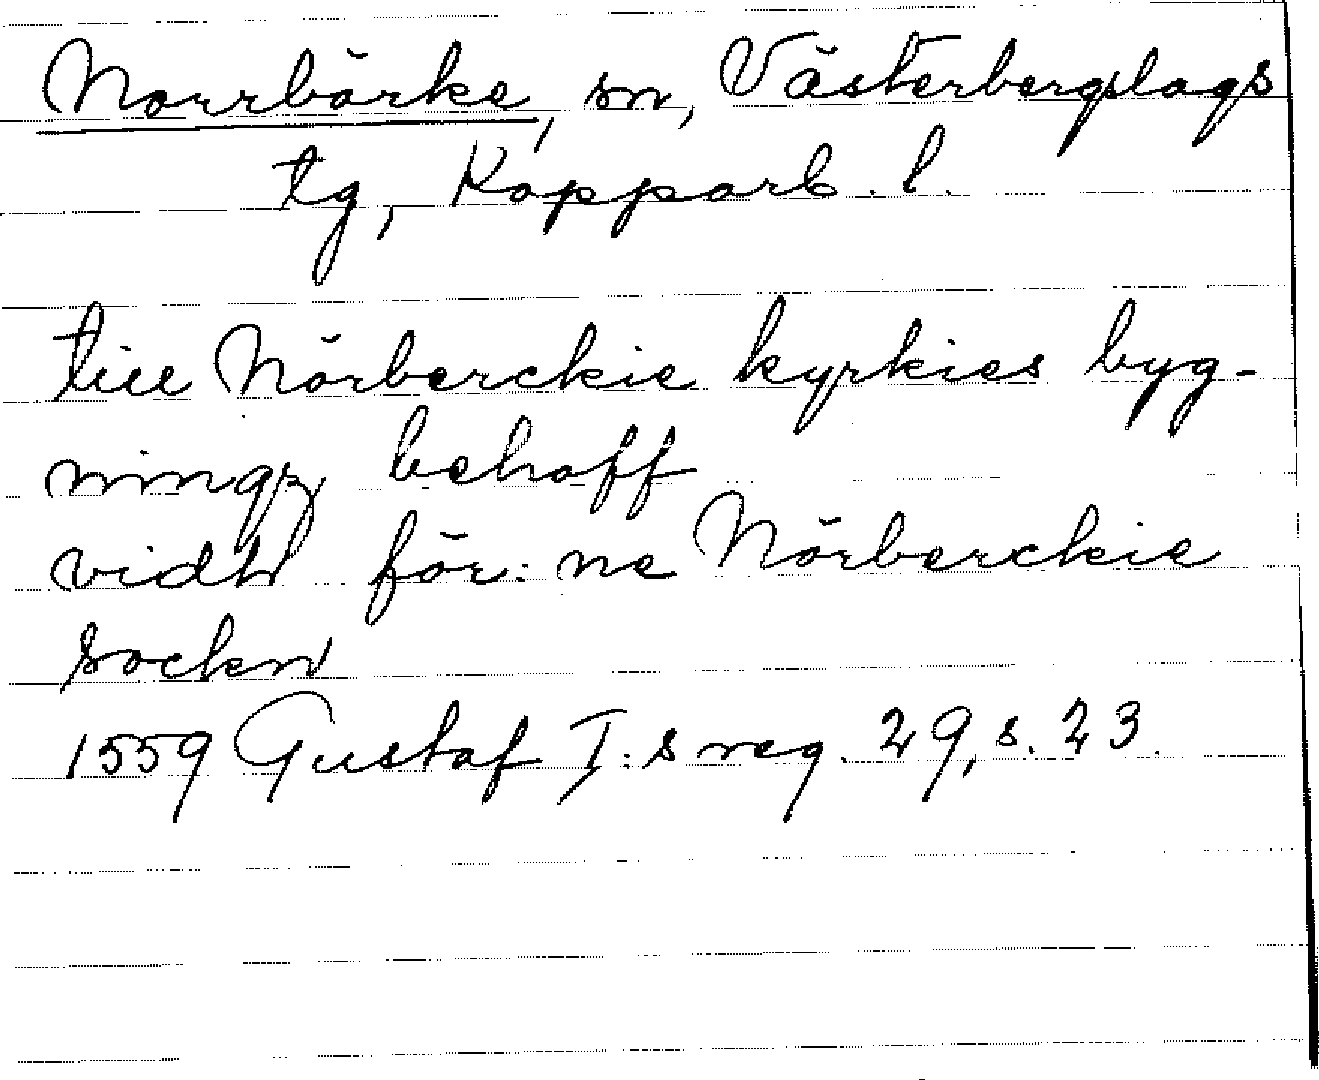 Norrbärke, sn, Västerbergslags
tg, Kopparb. l.
till Nörberckie kyrkies byg-
ningz behoff
vidh för:ne Nörberckie
sockn
1559 Gustaf I:s reg. 29, s. 23.